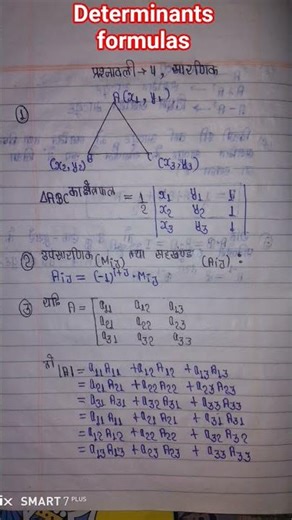 Determinants
formulas
प्रश्नावली → 4, सारणिक
① A(x₁, y₁)
(x₂, y₂) B C (x₃, y₃)
ΔABC का क्षेत्रफल = 1/2 | x₁ y₁ 1 |
| x₂ y₂ 1 |
| x₃ y₃ 1 |
② उपसारणिक (Mij) तथा सहखण्ड (Aij) :
Aij = (-1)^i+j · Mij
③ यदि A = [ a₁₁ a₁₂ a₁₃ ]
[ a₂₁ a₂₂ a₂₃ ]
[ a₃₁ a₃₂ a₃₃ ]
तो |A| = a₁₁A₁₁ + a₁₂A₁₂ + a₁₃A₁₃
= a₂₁A₂₁ + a₂₂A₂₂ + a₂₃A₂₃
= a₃₁A₃₁ + a₃₂A₃₂ + a₃₃A₃₃
= a₁₁A₁₁ + a₂₁A₂₁ + a₃₁A₃₁
= a₁₂A₁₂ + a₂₂A₂₂ + a₃₂A₃₂
= a₁₃A₁₃ + a₂₃A₂₃ + a₃₃A₃₃
ix SMART 7 PLUS